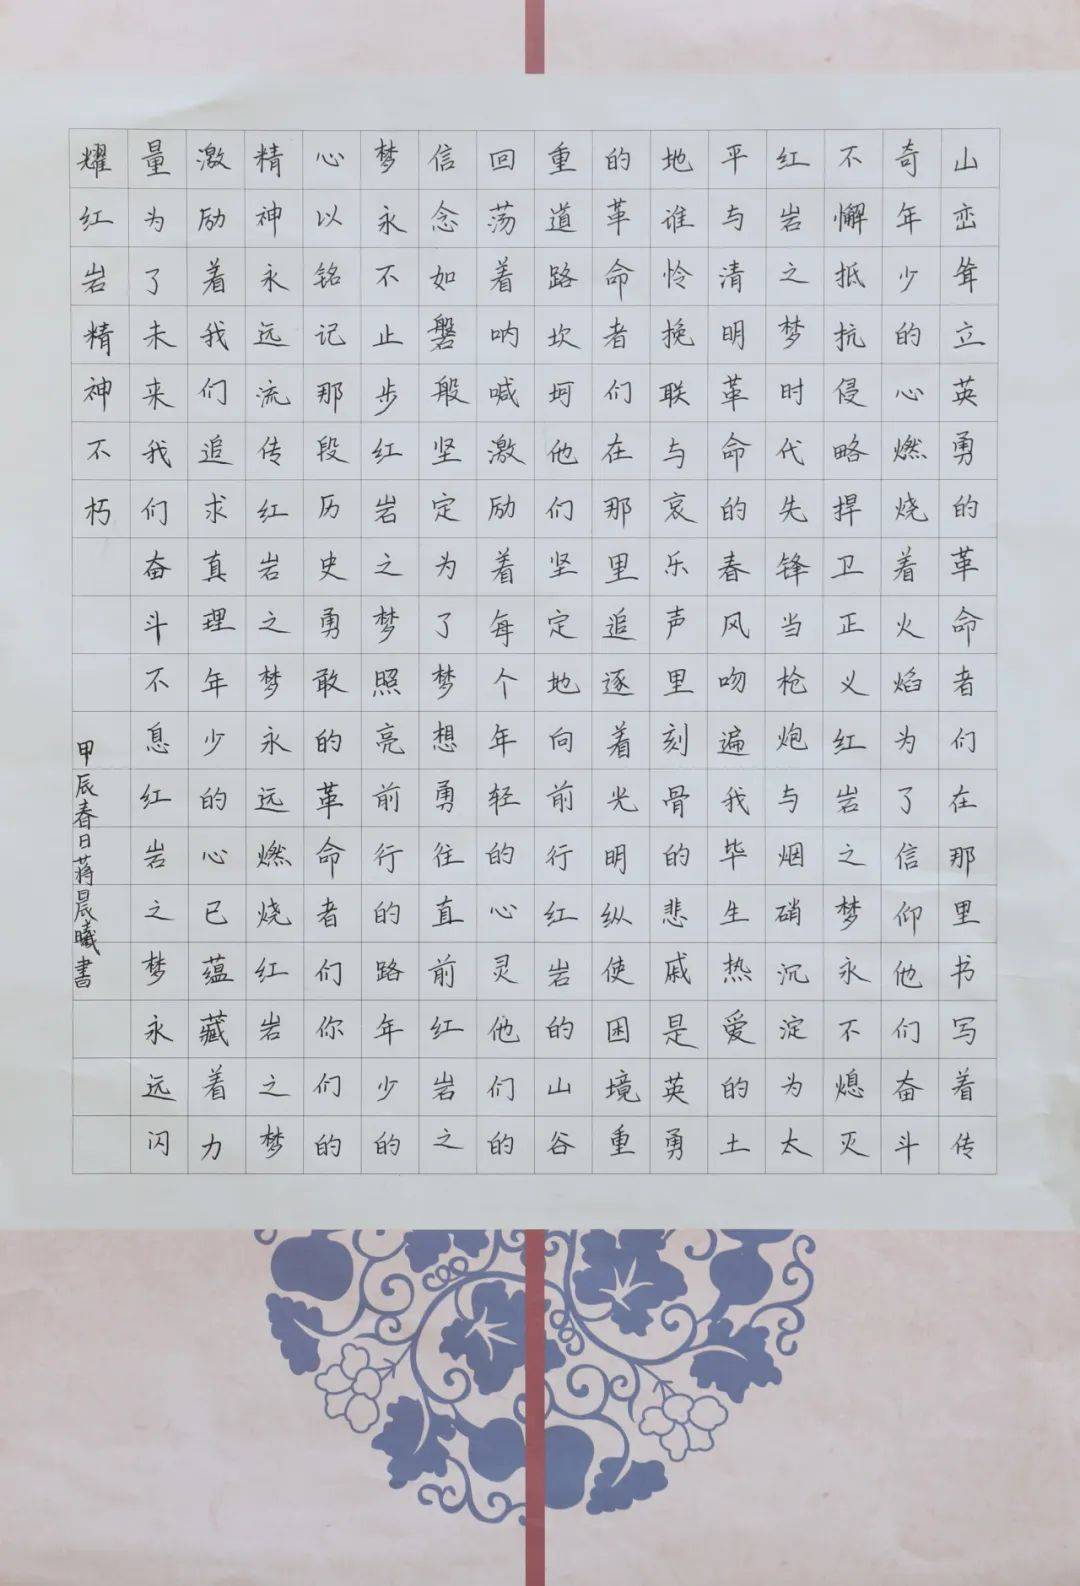 山峦耸立英勇的革命者们在那里书写着传
奇年少的心燃烧着火焰为了信仰他们奋斗
不懈抵抗侵略捍卫正义红岩之梦永不熄灭
红岩之梦时代先锋当枪炮与烟硝沉淀为太
平与清明革命的春风吻遍我毕生热爱的土
地谁怜挽联与哀乐声里刻骨的悲戚是英勇
的革命者们在那里追逐着光明纵使困境重
重道路坎坷他们坚定地向前行红岩的山谷
回荡着呐喊激励着每个年轻的心灵他们的
信念如磐般坚定为了梦想勇往直前红岩之
梦永不止步红岩之梦照亮前行的路年少的
心以铭记那段历史勇敢的革命者们你们的
精神永远流传红岩之梦永远燃烧红岩之梦
激励着我们追求真理年少的心已蕴藏着力
量为了未来我们奋斗不息红岩之梦永远闪
耀红岩精神不朽
甲辰春日蒋晨曦書